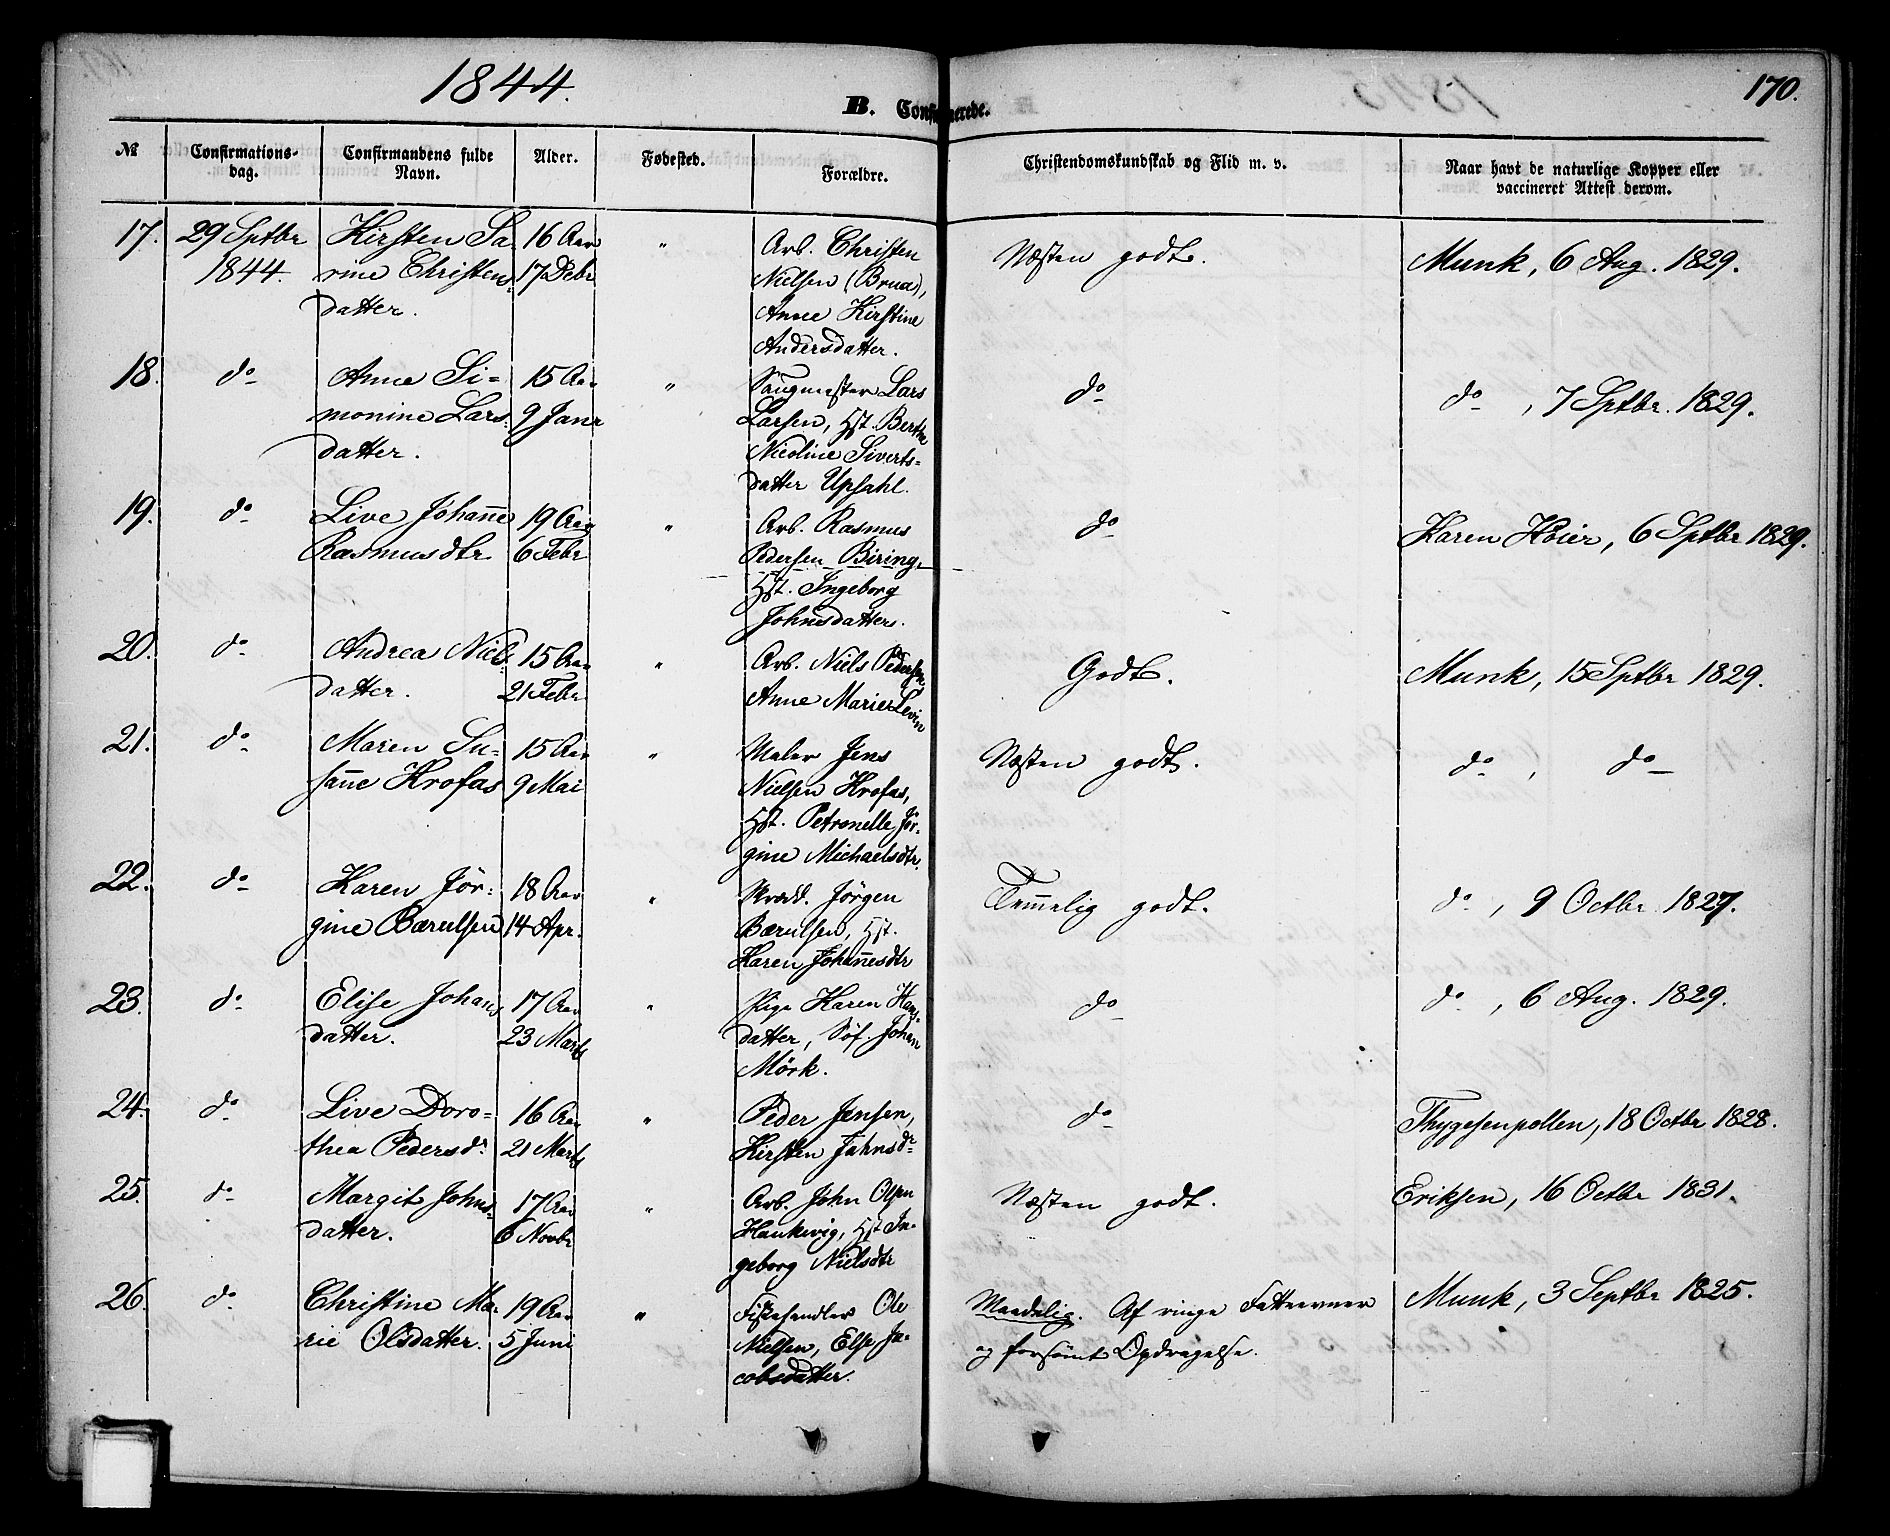 1844.
B. Confirmerede.
170.
№
Confirmations-
dag.
Confirmandens fulde
Navn.
Alder.
Fødested.
Forældre.
Christendomskundskab og Flid m. v.
Naar havt de naturlige Kopper eller
vaccineret Attest derom.
17. 29 Sptbr
1844.
Kirsten Sa
rine Christens-
datter.
16 Aar
17 Debr
"
Arb. Christen
Nielsen (Brua),
Anne Kirstine
Andersdatter.
Næsten godt.
Munk, 6 Aug. 1829.
18. do
Anne Si-
monine Lars
datter.
15 Aar
9 Janr
"
Saugmester Lars
Larsen, Hst. Berthe
Nicoline Siverts-
datter Upsahl.
do
do, 7 Sptbr. 1829.
19. do
Live Johanne
Rasmusdtr
19 Aar
6 Febr
"
Arb. Rasmus
Pedersen Biring,
Hst. Ingeborg
Johnsdatter.
do
Karen Høier, 6 Sptbr 1829.
20. do
Andrea Niels
datter.
15 Aar
21 Febr
"
Arb. Niels Pedersen,
Anne Marie Levin
Godt.
Munk, 15 Sptbr 1829.
21. do
Maren Su-
sanne Krofas
15 Aar
9 Mai
"
Maler Jens
Nielsen Krofas,
Hst. Petronelle Jør-
gine Michaelsdtr.
Næsten godt.
do, do
22. do
Karen Jör-
gine Bærulsen
18 Aar
14 Apr.
"
Skrædd. Jörgen
Bærulsen, Hst.
Karen Johannesdtr
Temmelig godt.
do, 9 Octbr 1827.
23. do
Elise Johans
datter.
17 Aar
23 Marts
"
Pige Karen Hans-
datter, Söf. Johan
Mörk.
do
do, 6 Aug. 1829.
24. do
Live Doro-
thea Pedersdr
16 Aar
21 Marts
"
Peder Jensen,
Kirsten Jahnsdr
do
Thygesenpollen, 18 Octbr 1828.
25. do
Margit Johns-
datter.
17 Aar
6 Novbr
"
Arb. John Olsen
Haukevig, Hst In-
geborg Nielsdtr
Næsten godt.
Eriksen, 16 Octbr 1831.
26. do
Christine Ma-
rie Olsdatter.
19 Aar
5 Juni
"
Fiskehandler Ole
Nielsen, Else Ja-
cobsdatter.
Maadelig. Af ringe Fatteevner
og forsömt Opdragelse.
Munk, 3 Septbr 1825.